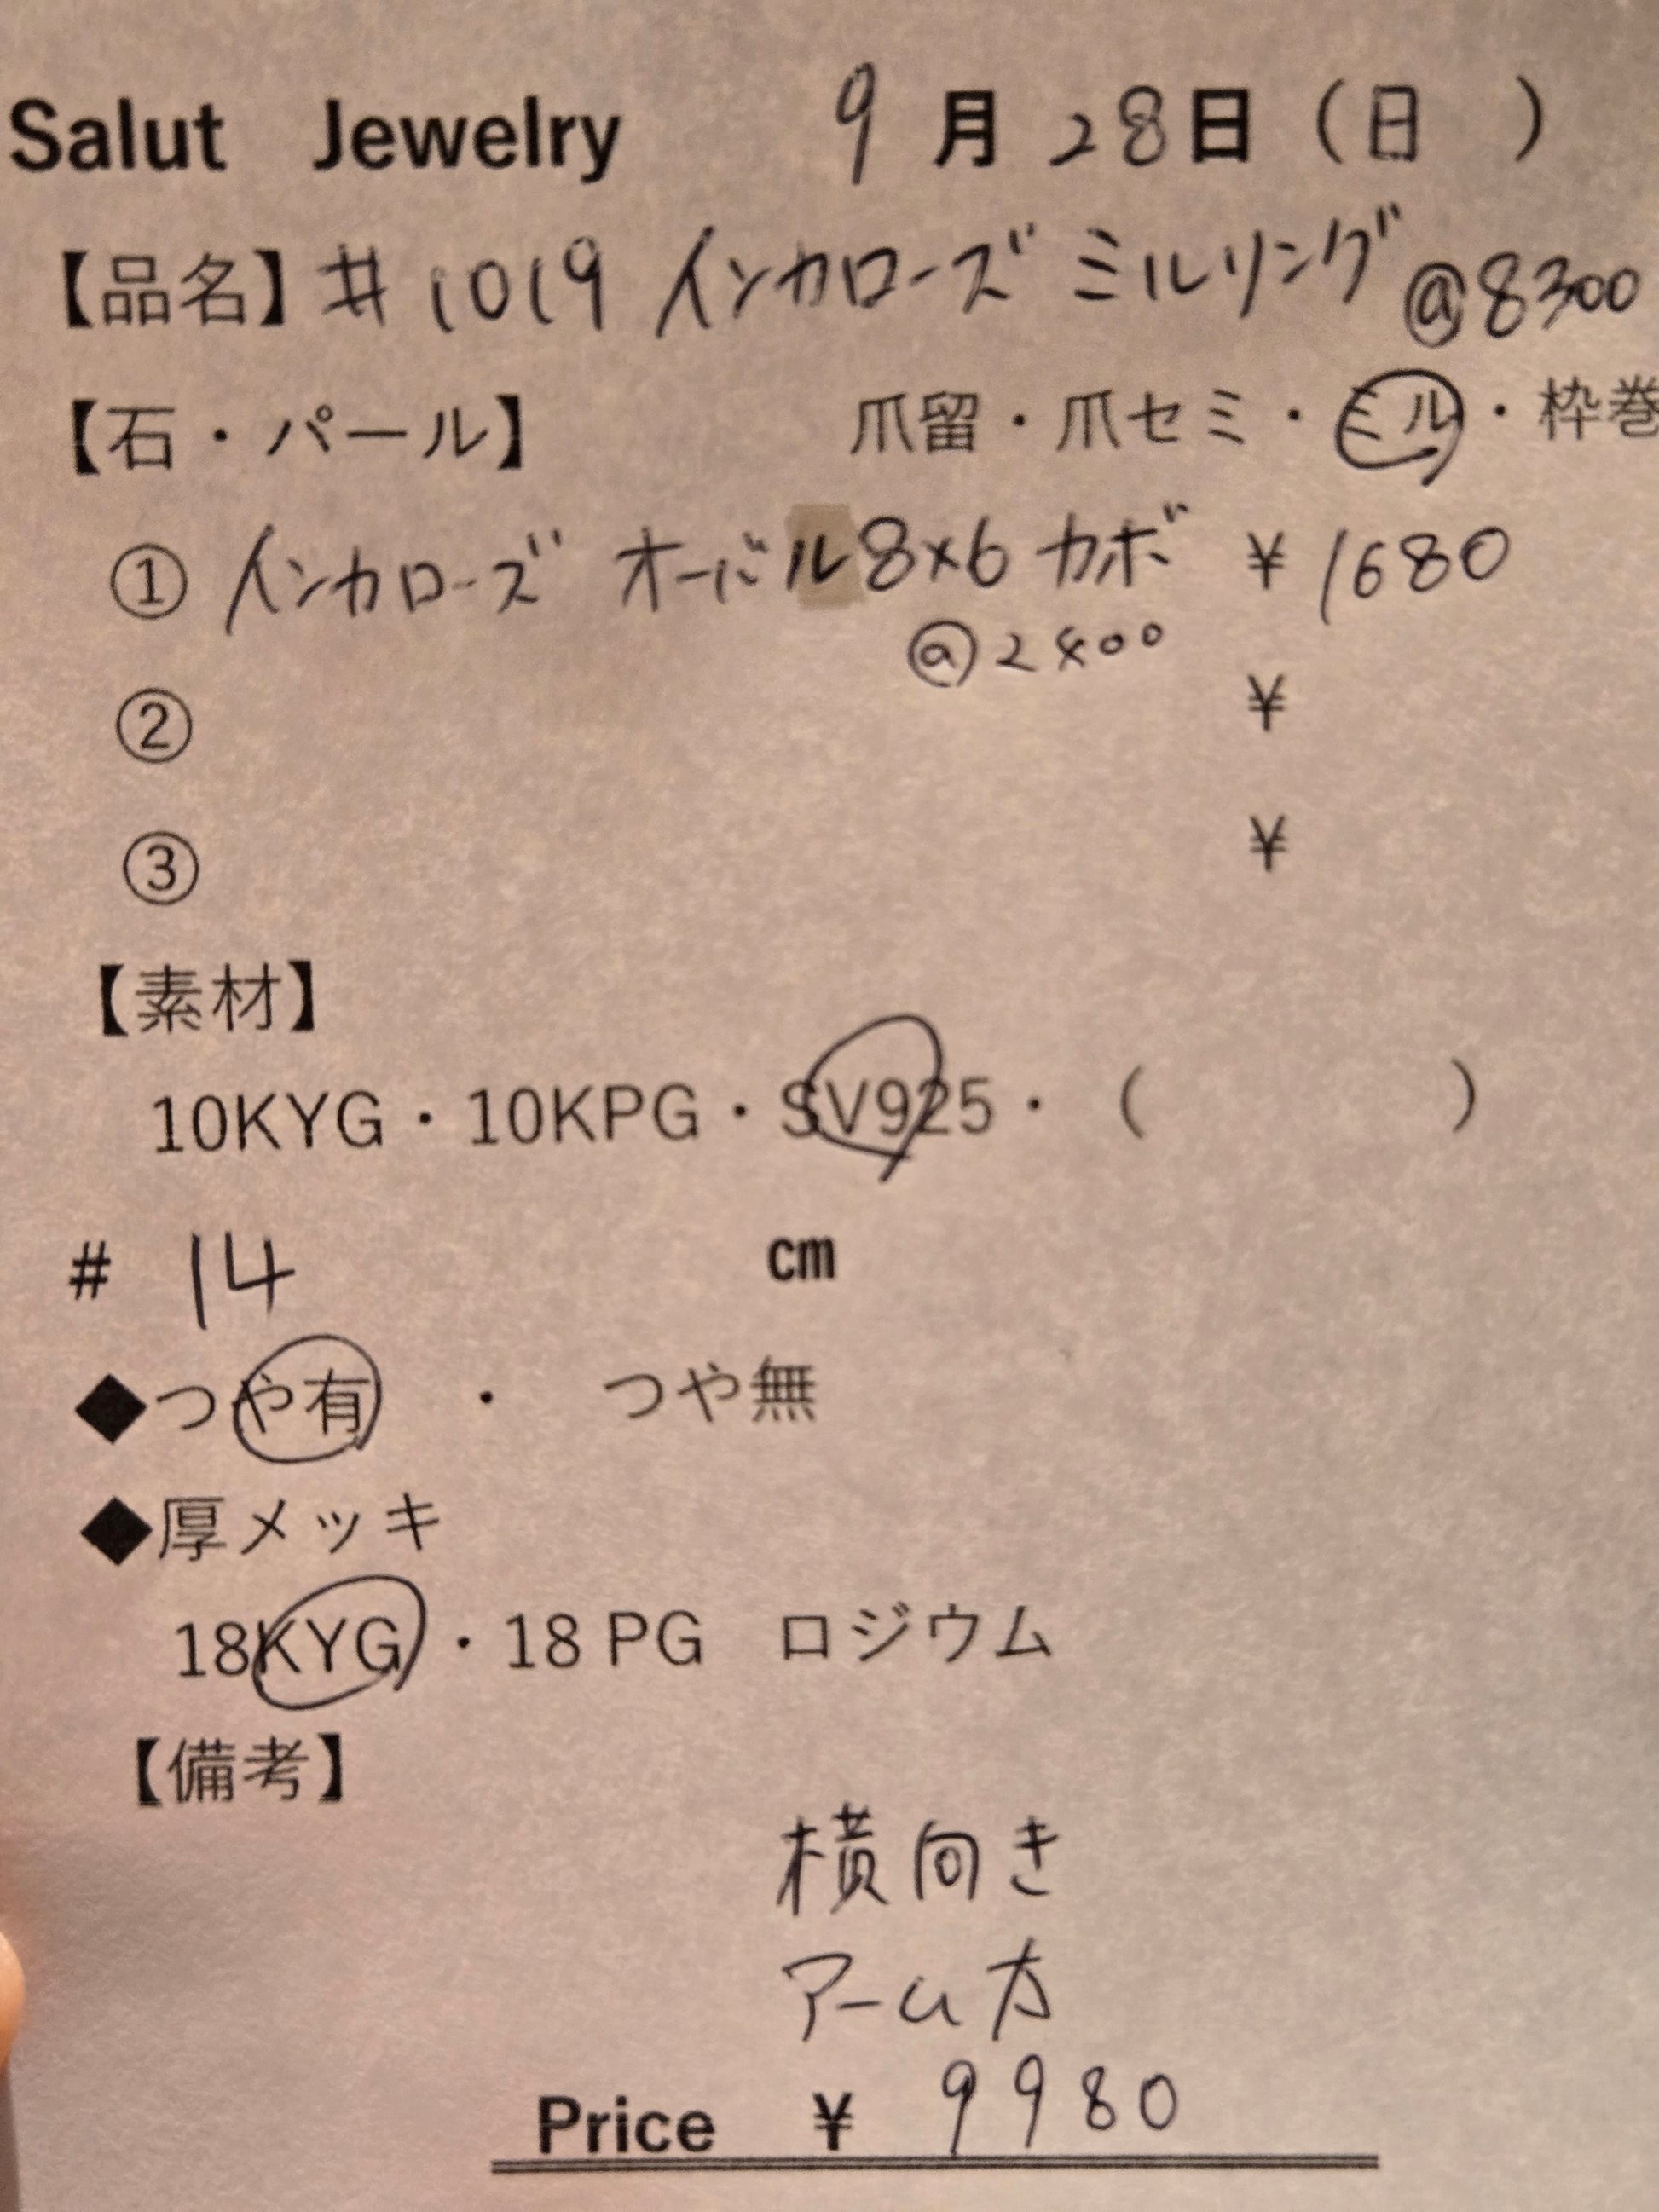 Salut Jewelry 9月28日(日)
【品名】#1019 インカローズ ミルリング @8300
【石・パール】 爪留・爪セミ・ミル・枠巻
① インカローズ オーバル8×6 カボ ¥1680
@2400
② ¥
③ ¥
【素材】
10KYG・10KPG・SV925・( )
# 14 cm
◆つや有 ・ つや無
◆厚メッキ
18KYG・18 PG ロジウム
【備考】
横向き
アーム太
Price ¥ 9980